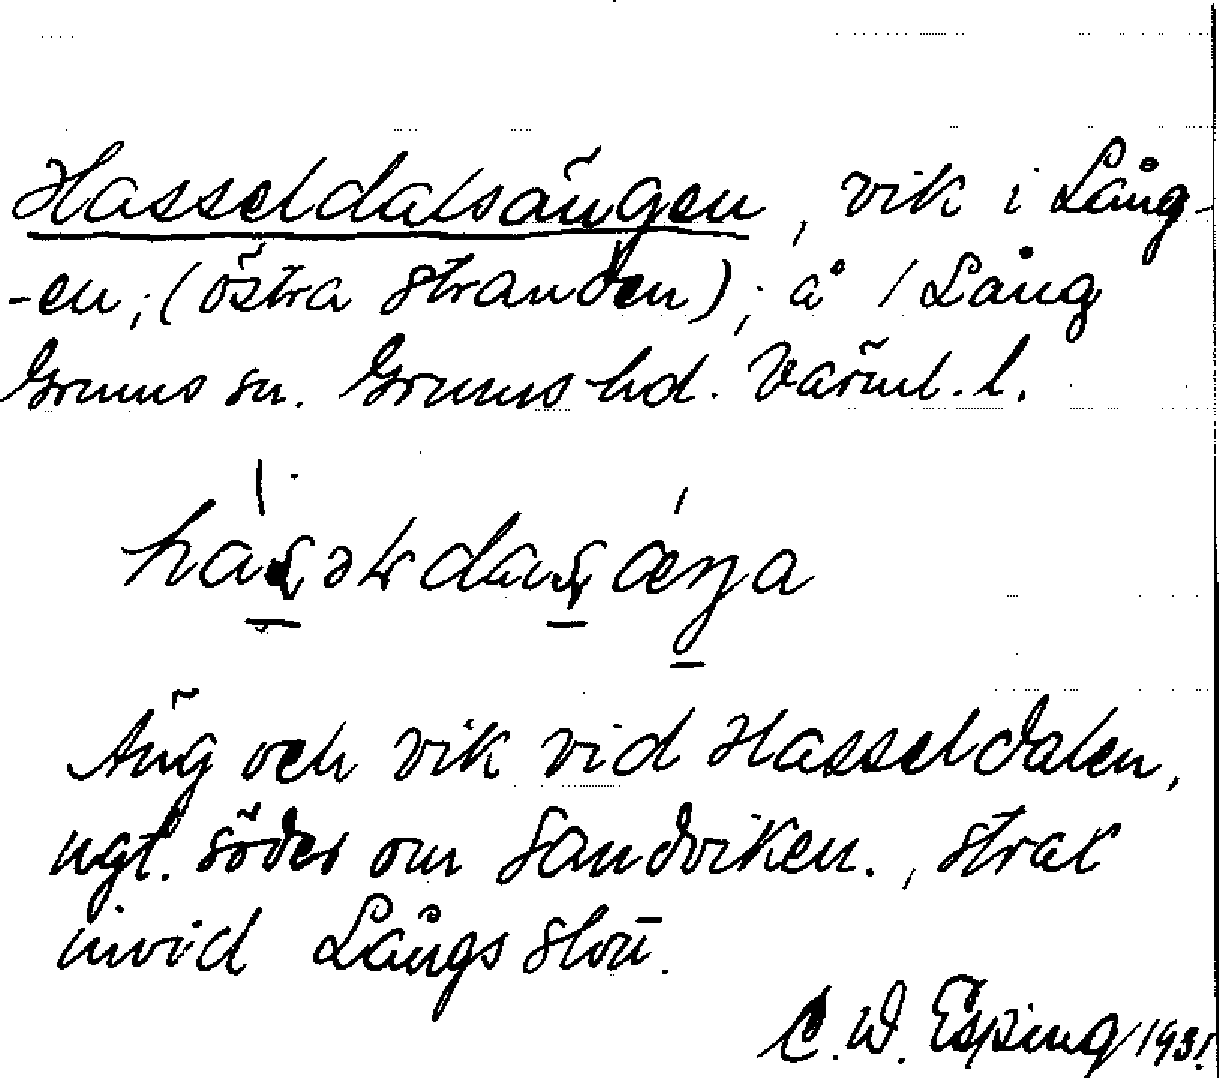 Hasseldalsängen, vik i Lång-
-en, (östra stranden), å 1 Lång
Grums sn. Grums hd. Värml. l.
Äng och vik vid Hasseldalen,
ngt. söder om Sandviken., strax
invid Långs slott.
C. W. Esping 1931.